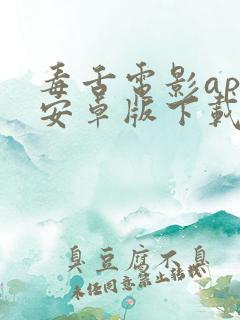 毒舌电影ap
安卓版下载
臭豆腐不臭
未经同意禁止转载